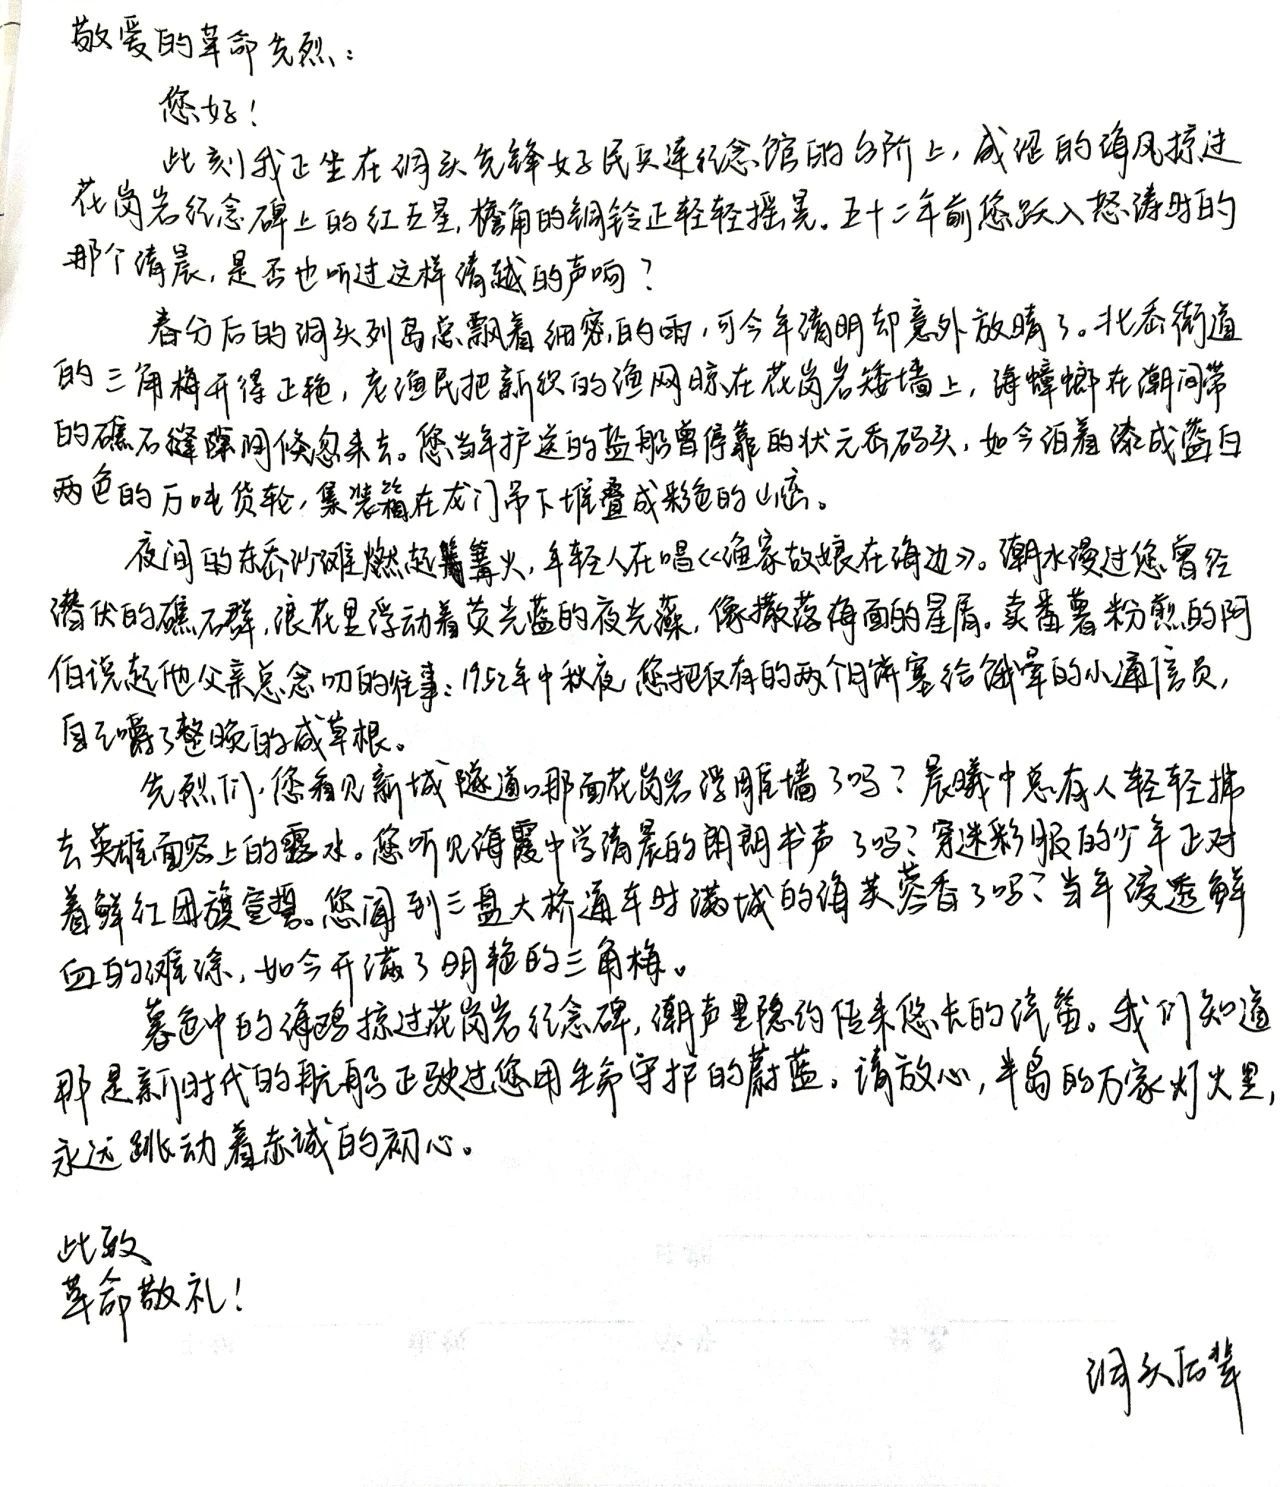 敬爱的革命先烈：
您好！
此刻我正坐在洞头先锋女子民兵连纪念馆的台阶上，咸湿的海风掠过
花岗岩纪念碑上的红五星，檐角的铜铃正轻轻摇晃。五十二年前您跃入怒涛时的
那个清晨，是否也听过这样清越的声响？
春分后的洞头列岛总飘着细密的雨，可今年清明却意外放晴了。北岙街道
的三角梅开得正艳，老渔民把新织的渔网晾在花岗岩矮墙上，海蟑螂在潮间带
的礁石缝隙间倏忽来去。您当年护送的盐船曾停靠的状元岙码头，如今泊着漆成蓝白
两色的万吨货轮，集装箱在龙门吊下堆叠成彩色的山峦。
夜间的东岙沙滩燃起篝火，年轻人在唱《渔家姑娘在海边》。潮水漫过您曾经
潜伏的礁石群，浪花里浮动着荧光蓝的夜光藻，像撒落海面的星屑。卖番薯粉煎的阿
伯说起他父亲总念叨的往事：1952年中秋夜，您把仅有的两个月饼塞给饿晕的小通信员，
自己嚼了整晚的咸草根。
先烈们，您看见新城隧道口那面花岗岩浮雕墙了吗？晨曦中总有人轻轻拂
去英雄面容上的露水。您听见海霞中学清晨的朗朗书声了吗？穿迷彩服的少年正对
着鲜红团旗宣誓。您闻到三盘大桥通车时满城的海芙蓉香了吗？当年浸透鲜
血的滩涂，如今开满了明艳的三角梅。
暮色中的海鸥掠过花岗岩纪念碑，潮声里隐约传来悠长的汽笛。我们知道
那是新时代的航船正驶过您用生命守护的蔚蓝。请放心，半岛的万家灯火里，
永远跳动着赤诚的初心。
此致
革命敬礼！
洞头后辈